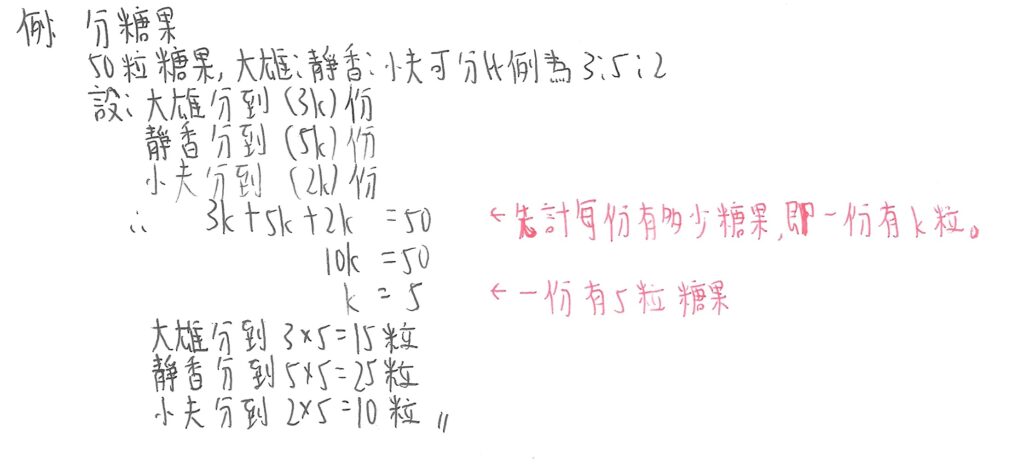 例. 分糖果
50粒糖果, 大雄:靜香:小夫可分比例為 3:5:2
設: 大雄分到 (3k) 份
靜香分到 (5k) 份
小夫分到 (2k) 份
∴ 3k+5k+2k =50 ←先計每份有多少糖果,即一份有k粒。
10k =50
k = 5 ←一份有5粒糖果
大雄分到 3×5=15粒
靜香分到 5×5=25粒
小夫分到 2×5=10粒 〃